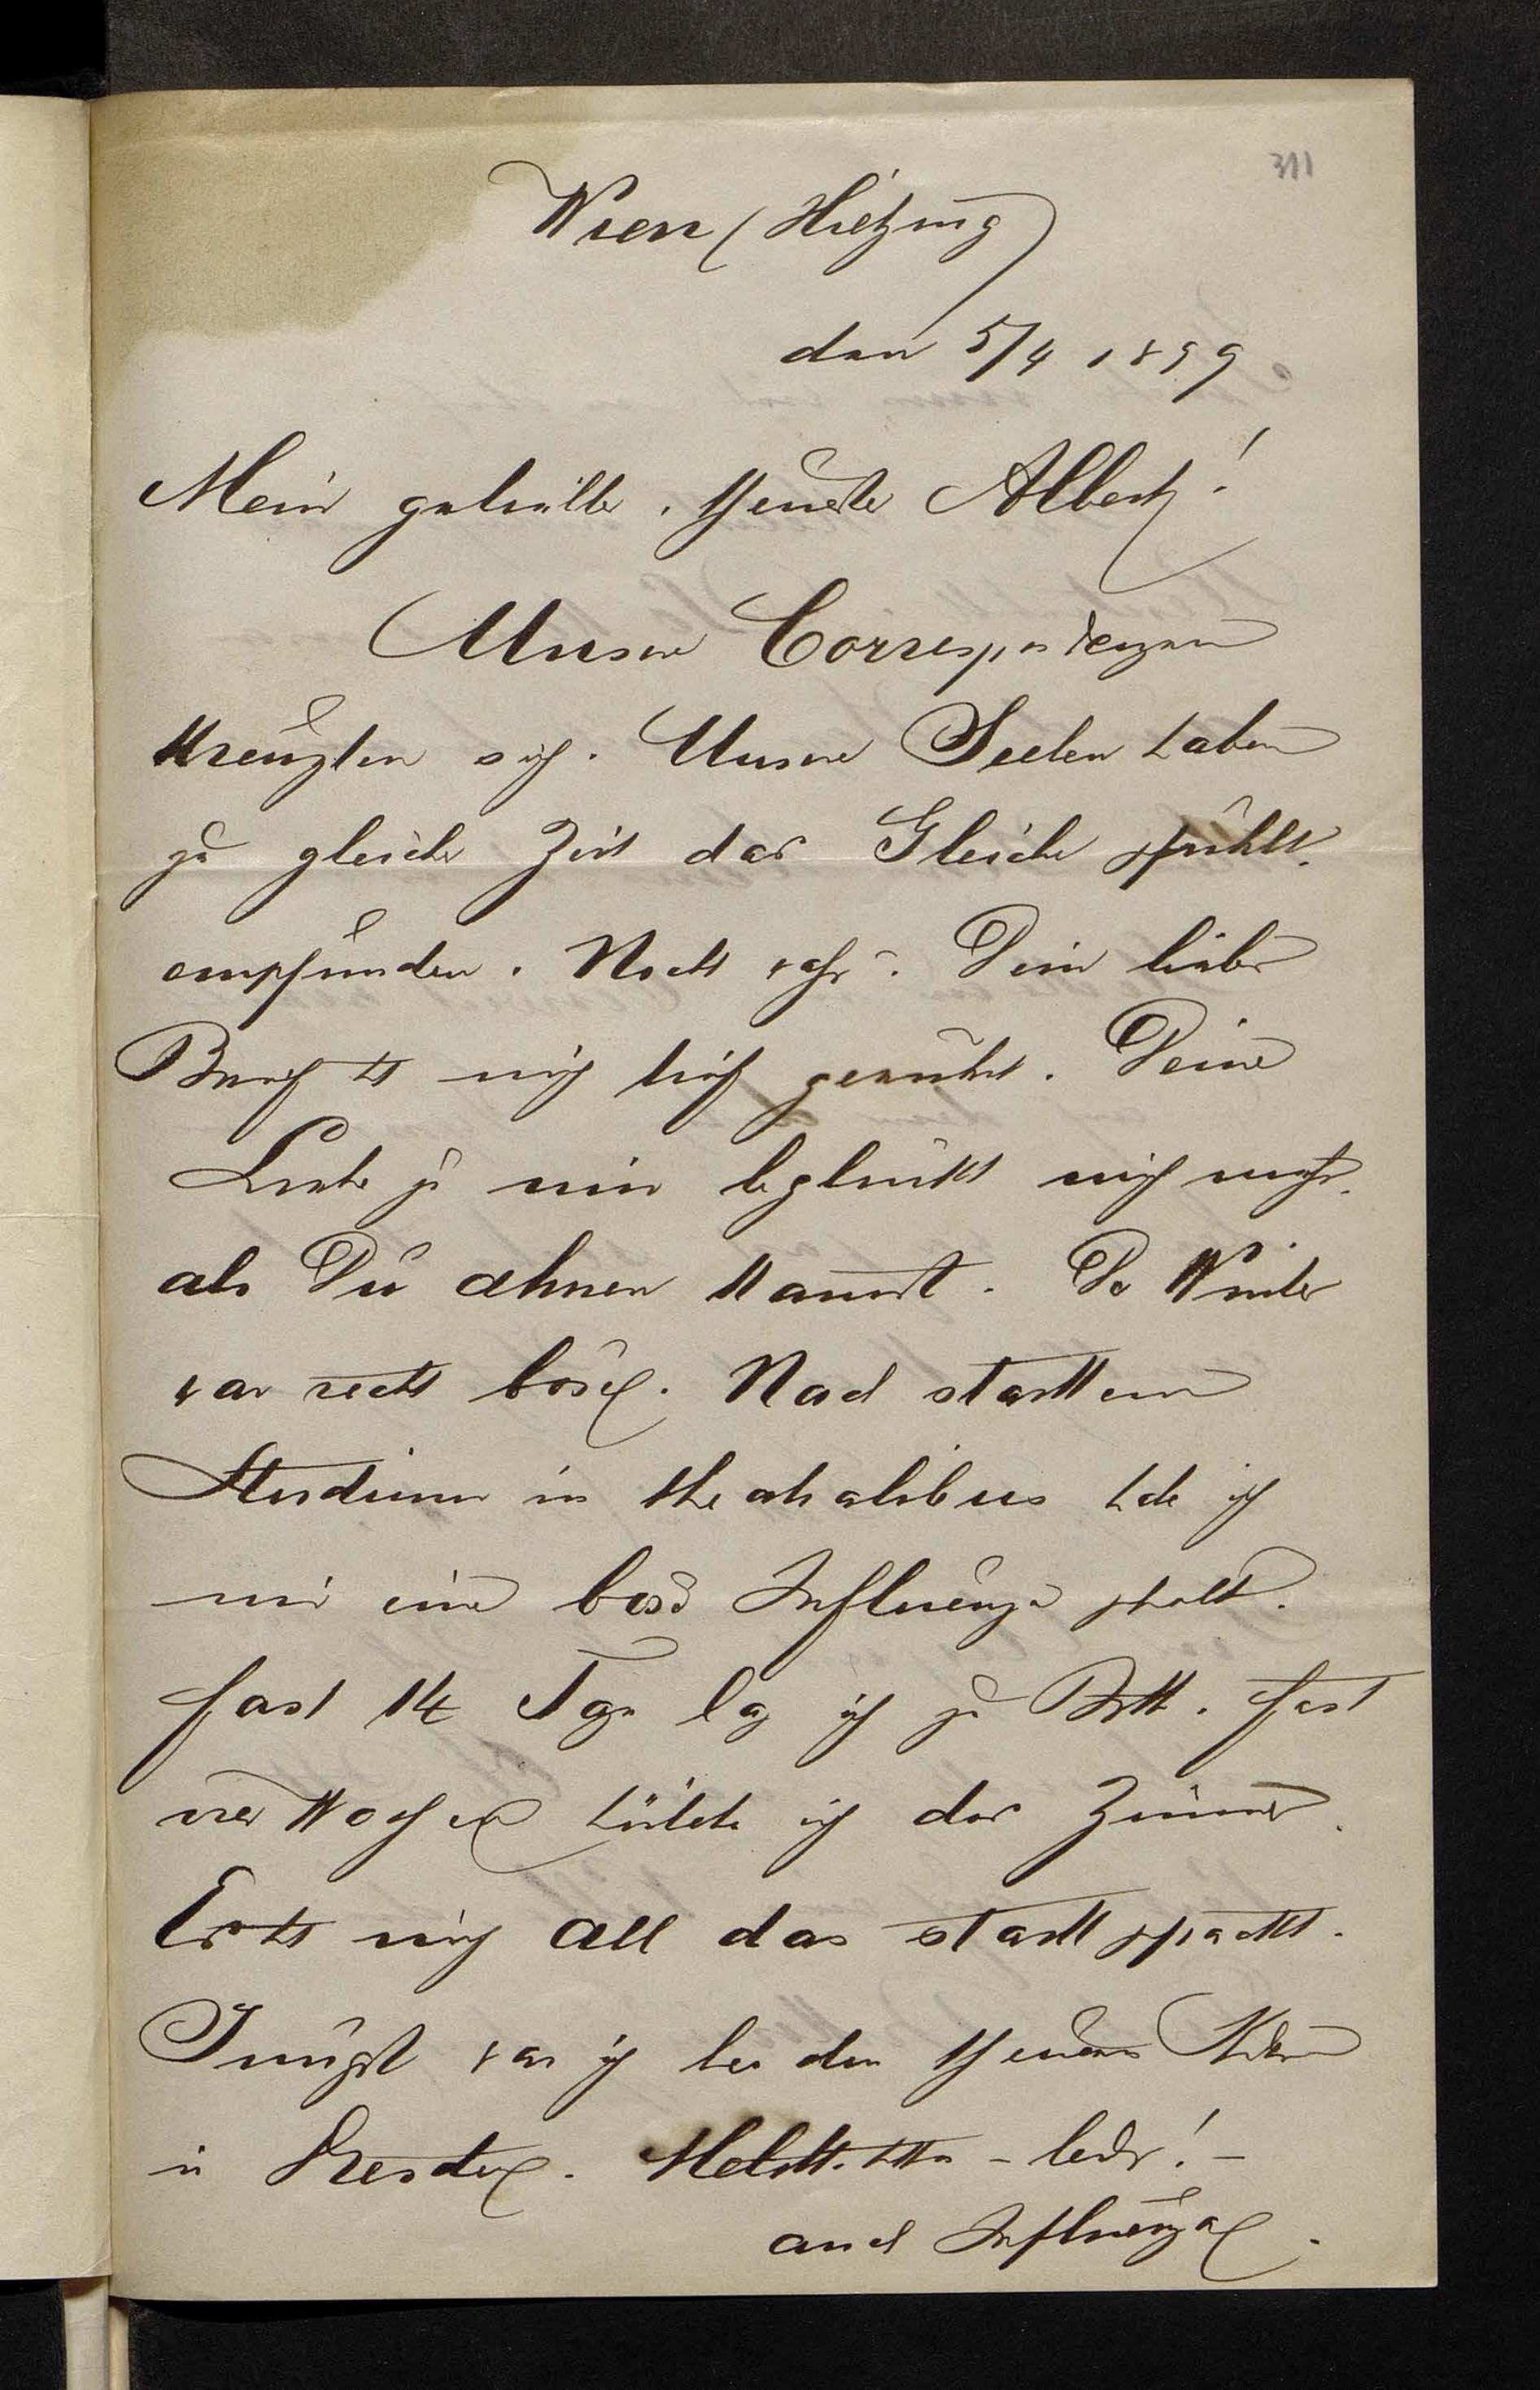 311
Wien (Hietzing)
den 5/4 1899
Mein geliebter, theurer Albert!
Unsere Correspondenzen
kreuzten sich. Unsere Seelen haben
zu gleicher Zeit das Gleiche gefühlt,
empfunden. Nicht wahr? Dein lieber
Brief hat mich tief gerührt. Deine
Liebe zu mir beglückt mich mehr,
als Du ahnen kannst. Der Winter
war recht böse. Nach starkem
Studium in theatralibus holte ich
mir eine böse Influenza
fast 14 Tage lag ich zu Bett. fast
vier Wochen hütete ich das Zimmer.
Es hat mich all das stark gepackt.
Jüngst war ich bei den theuren Kindern
in Dresden. hatte – leider! –
auch Influenza.